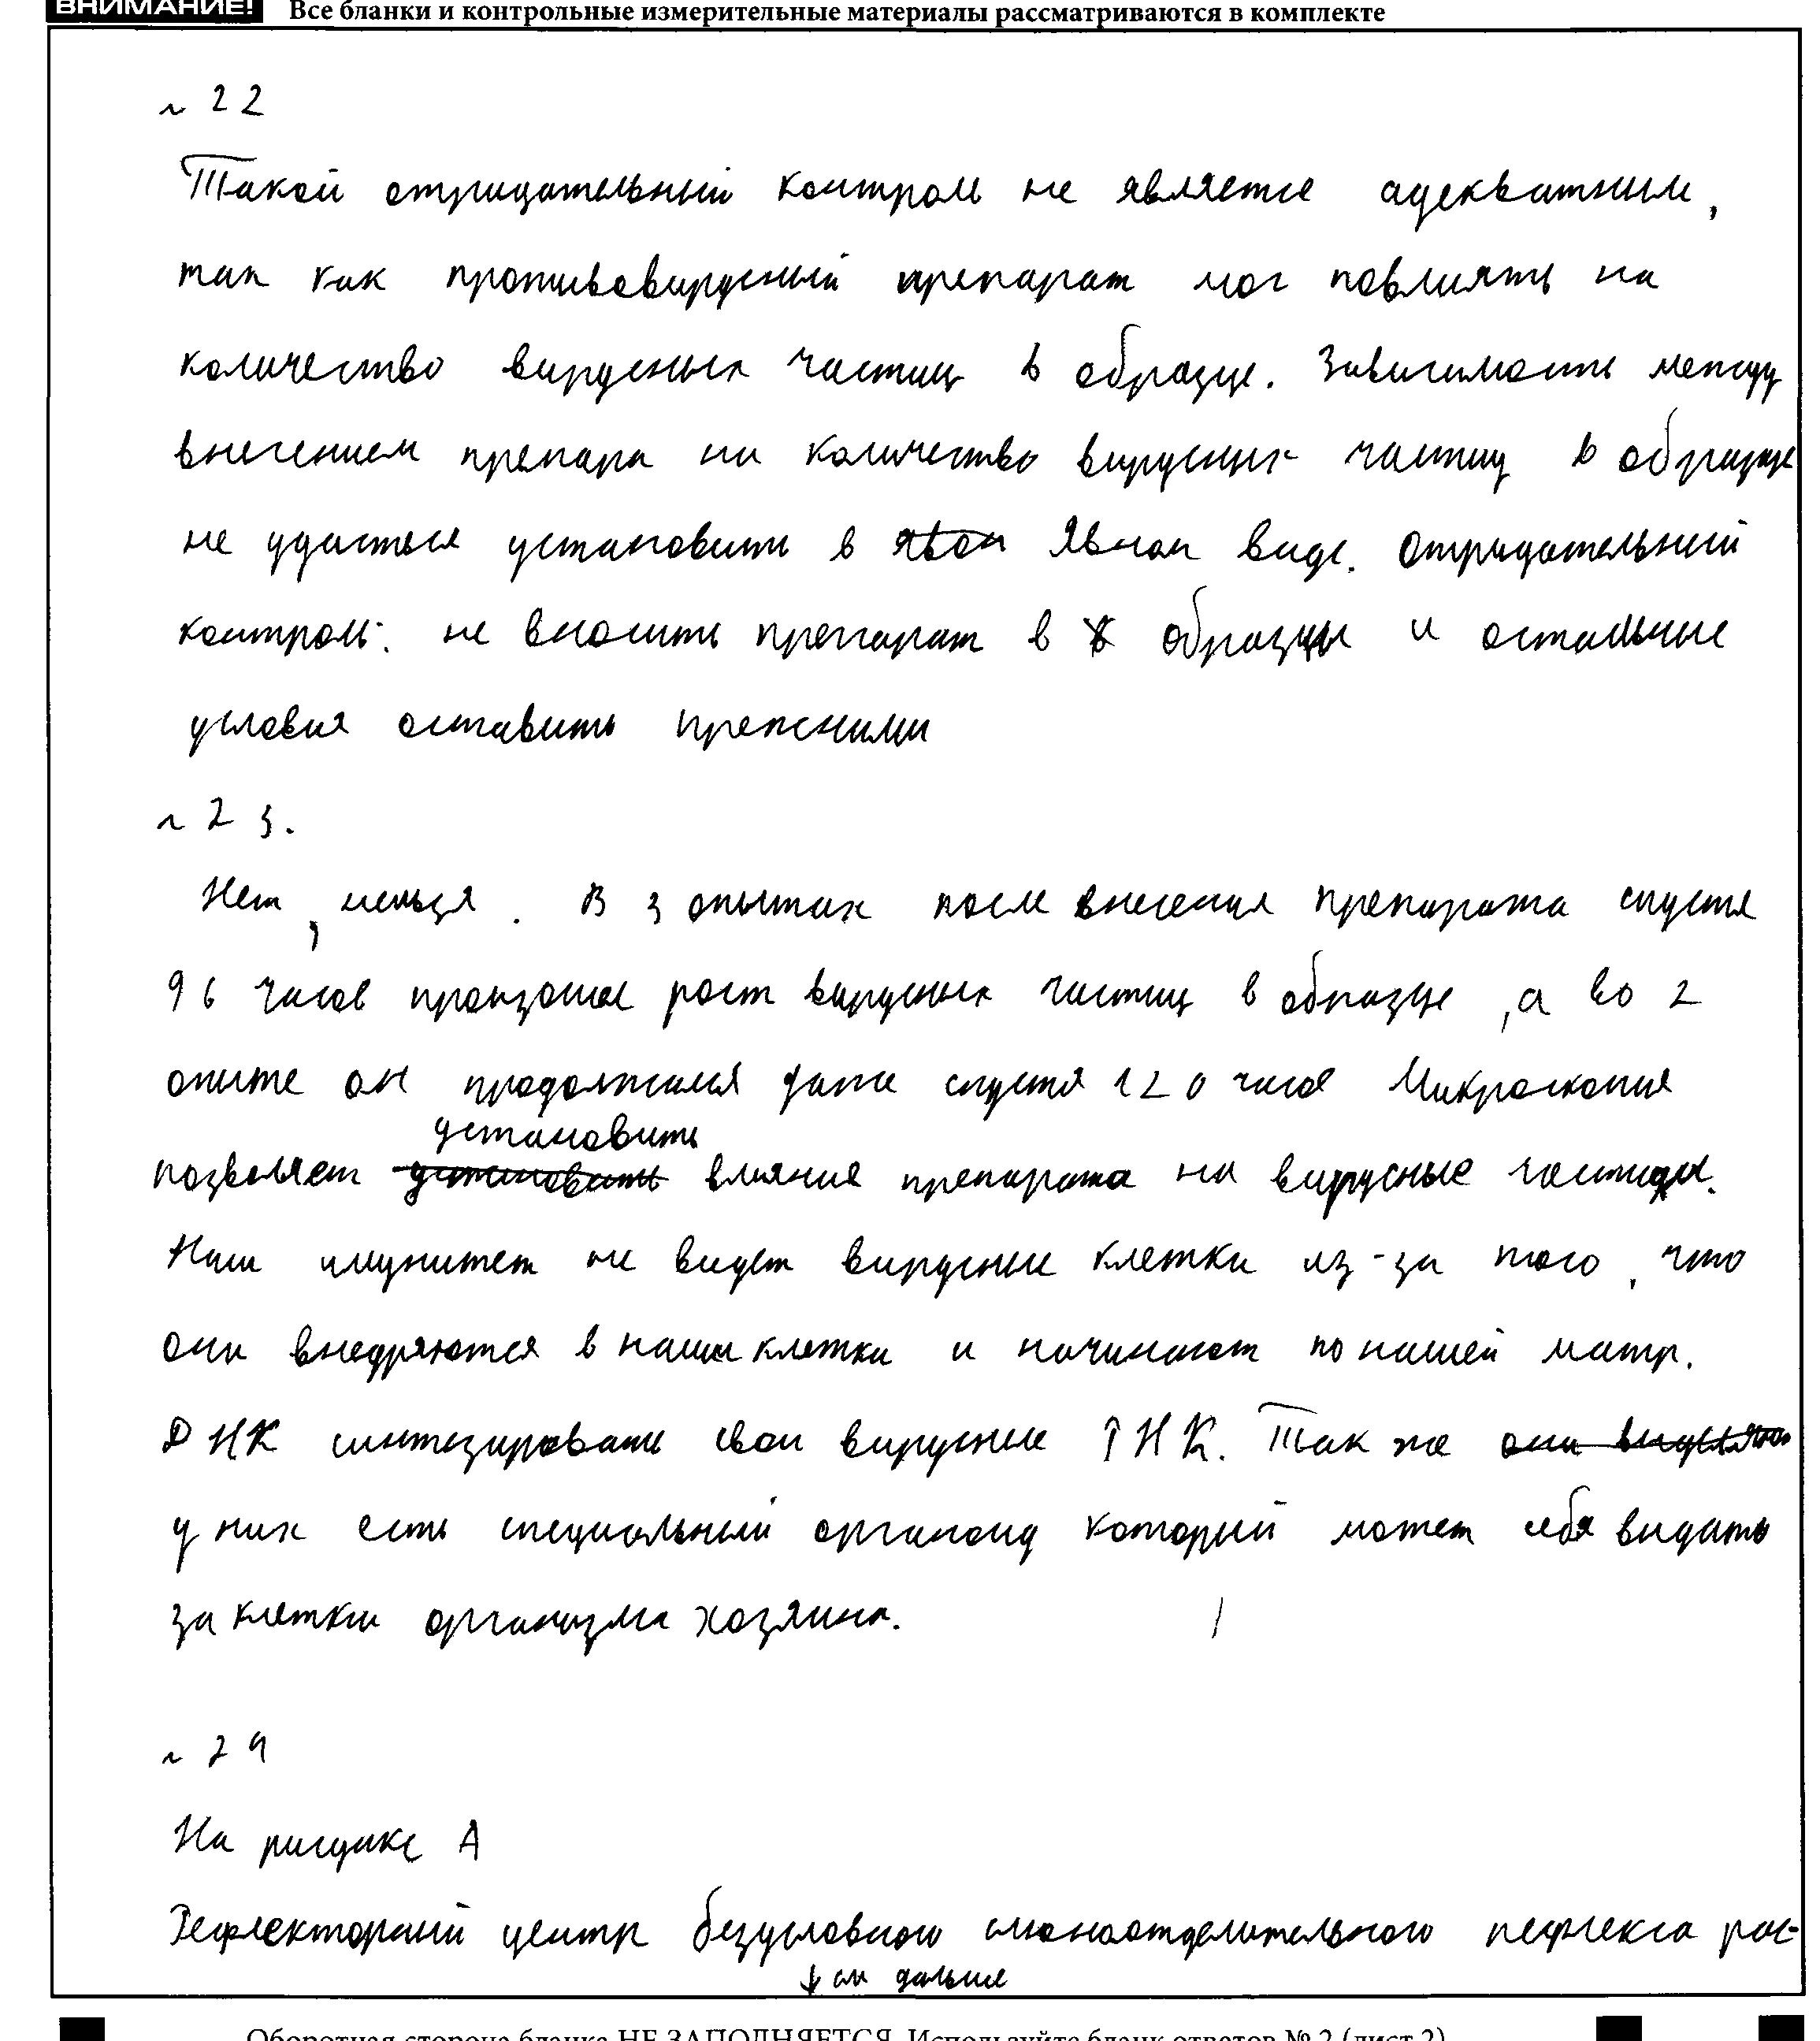 ВНИМАНИЕ! Все бланки и контрольные измерительные материалы рассматриваются в комплекте
~ 22
Такой отрицательный контроль не является адекватным,
так как противовирусный препарат мог повлиять на
количество вирусных частиц в образце. Зависимость между
внесением препара на количество вирусных частиц в образце
не удасться установить в явном виде. Отрицательный
контроль: не вносить препарат в образцы и остальные
условия оставить прежними
~ 23.
Нет, нельзя. В 3 опытах после внесения препарата спустя
96 часов произошел рост вирусных частиц в образце, а во 2
опыте он продолжился даже спустя 120 часов Микроскопия
установить
позволяет установить влияние препарата на вирусные частицы.
Наш имунитет не видет вирусные клетки из-за того, что
они внедряются в наши клетки и начинают по нашей матр.
ДНК синтезировать свои вирусные РНК. Так же они
у них есть специальный органоид который может себя видать
за клетки организма хозяина.
~ 24
На рисунке А
Рефлекторный центр безусловного слюноотделительного рефлекса рас-
↓ см дальше
Оборотная сторона бланка НЕ ЗАПОЛНЯЕТСЯ. Используйте бланк ответов № 2 (лист 2)